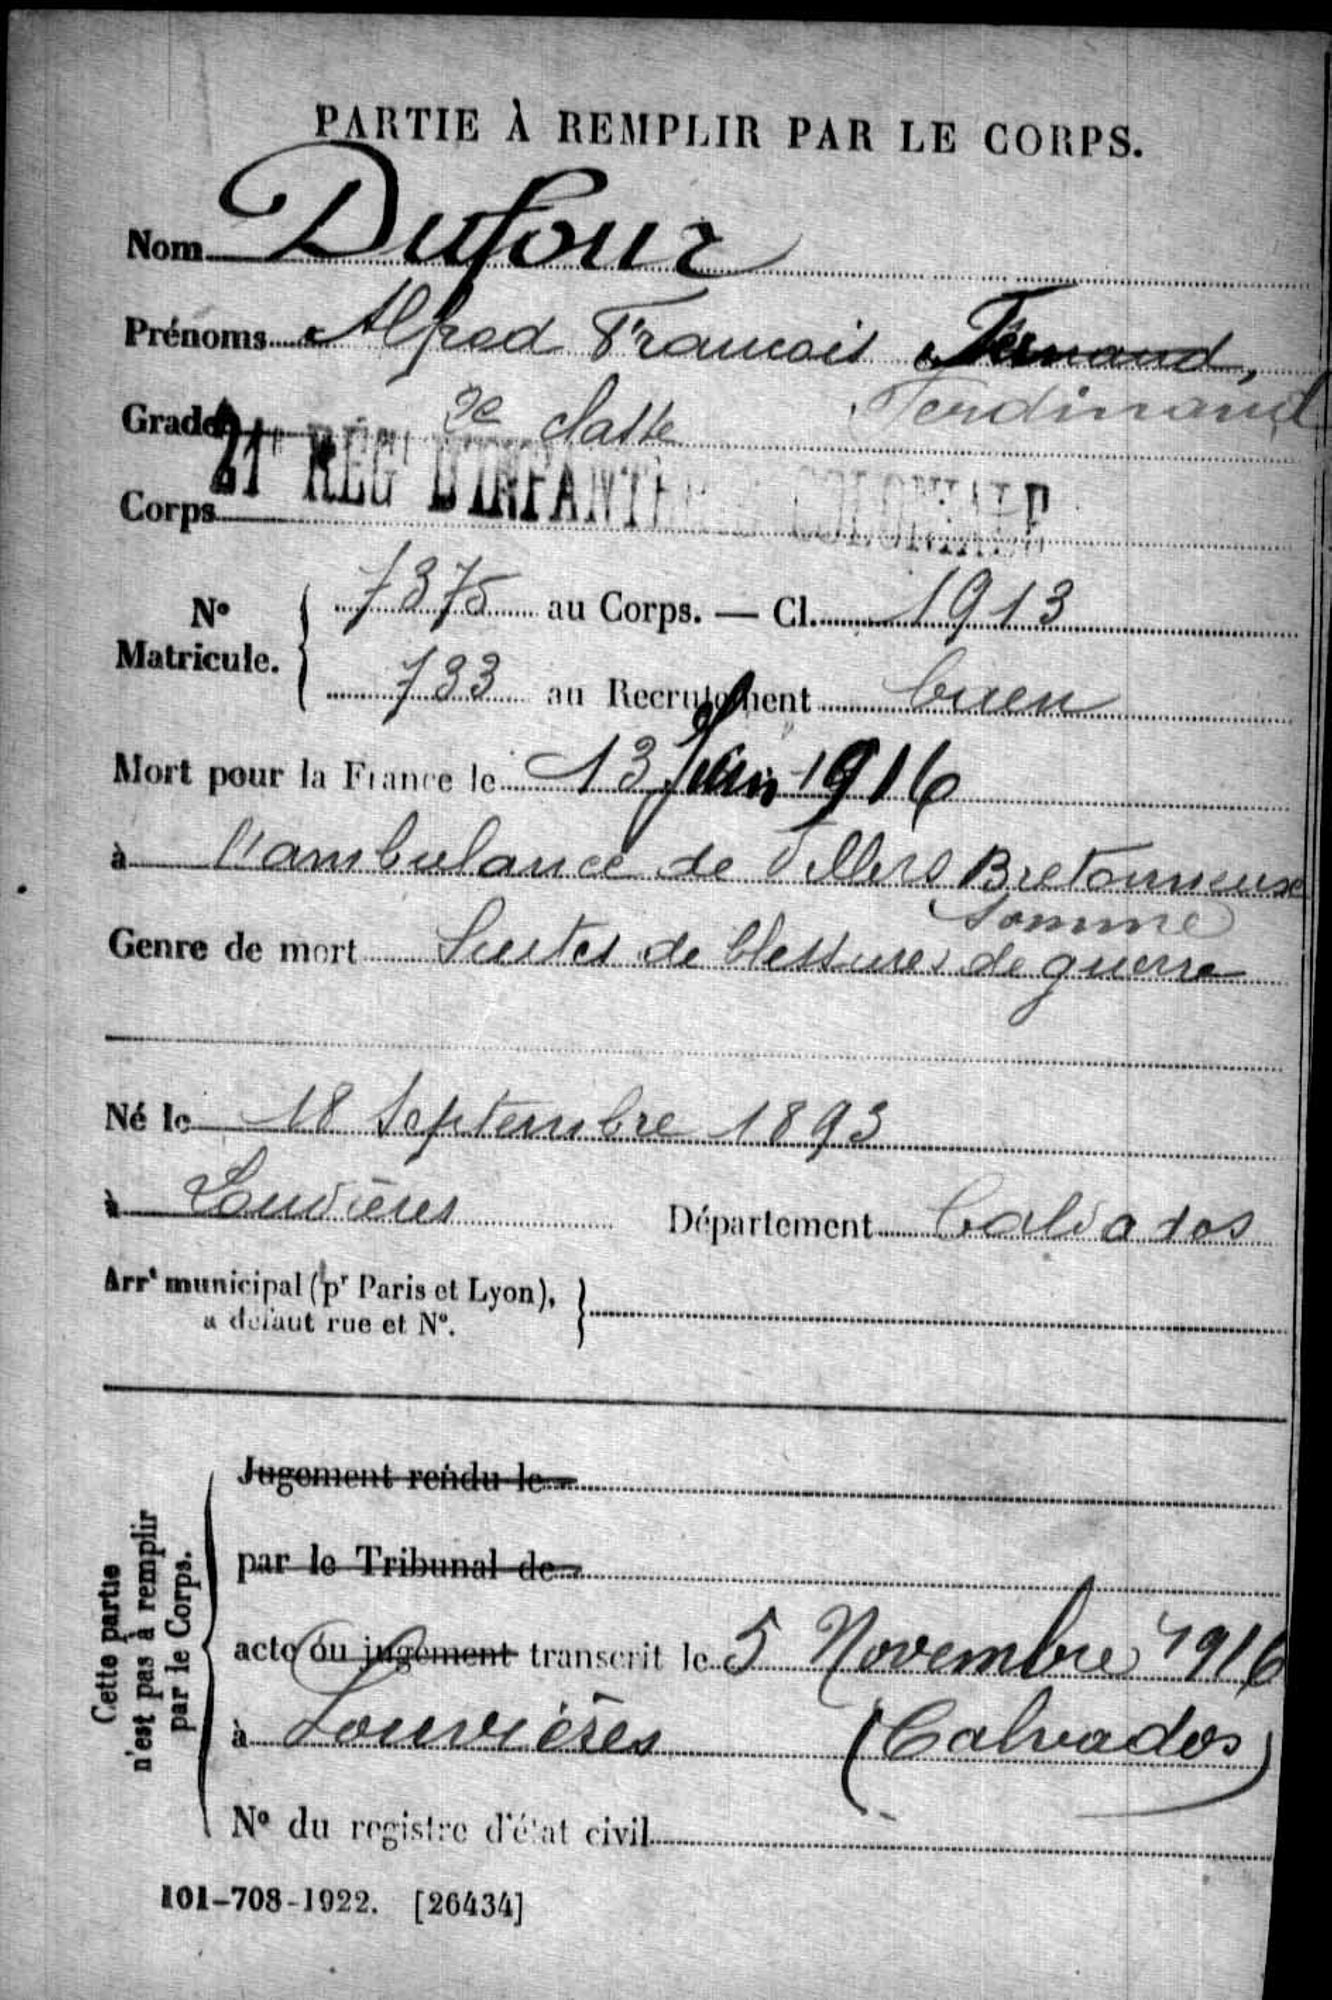 PARTIE À REMPLIR PAR LE CORPS.
Nom Dufour
Prénoms Alfred Francois Fernand,
Ferdinand
Grade 2e classe
21e RÉGt D'INFANTERIE COLONIALE
Corps
No Matricule. { 7375 au Corps. — Cl. 1913
733 au Recrutement Caen
Mort pour la France le 13 Juin 1916
à l'ambulance de Villers Bretonneux
Somme
Genre de mort Suites de blessures de guerre
Né le 18 Septembre 1893
à Louvières Département Calvados
Arrt municipal (pr Paris et Lyon), }
à défaut rue et No.
Cette partie
n'est pas à remplir
par le Corps.
Jugement rendu le
par le Tribunal de
acte ou jugement transcrit le 5 Novembre 1916
à Louvières (Calvados)
No du registre d'état civil
101-708-1922. [26434]